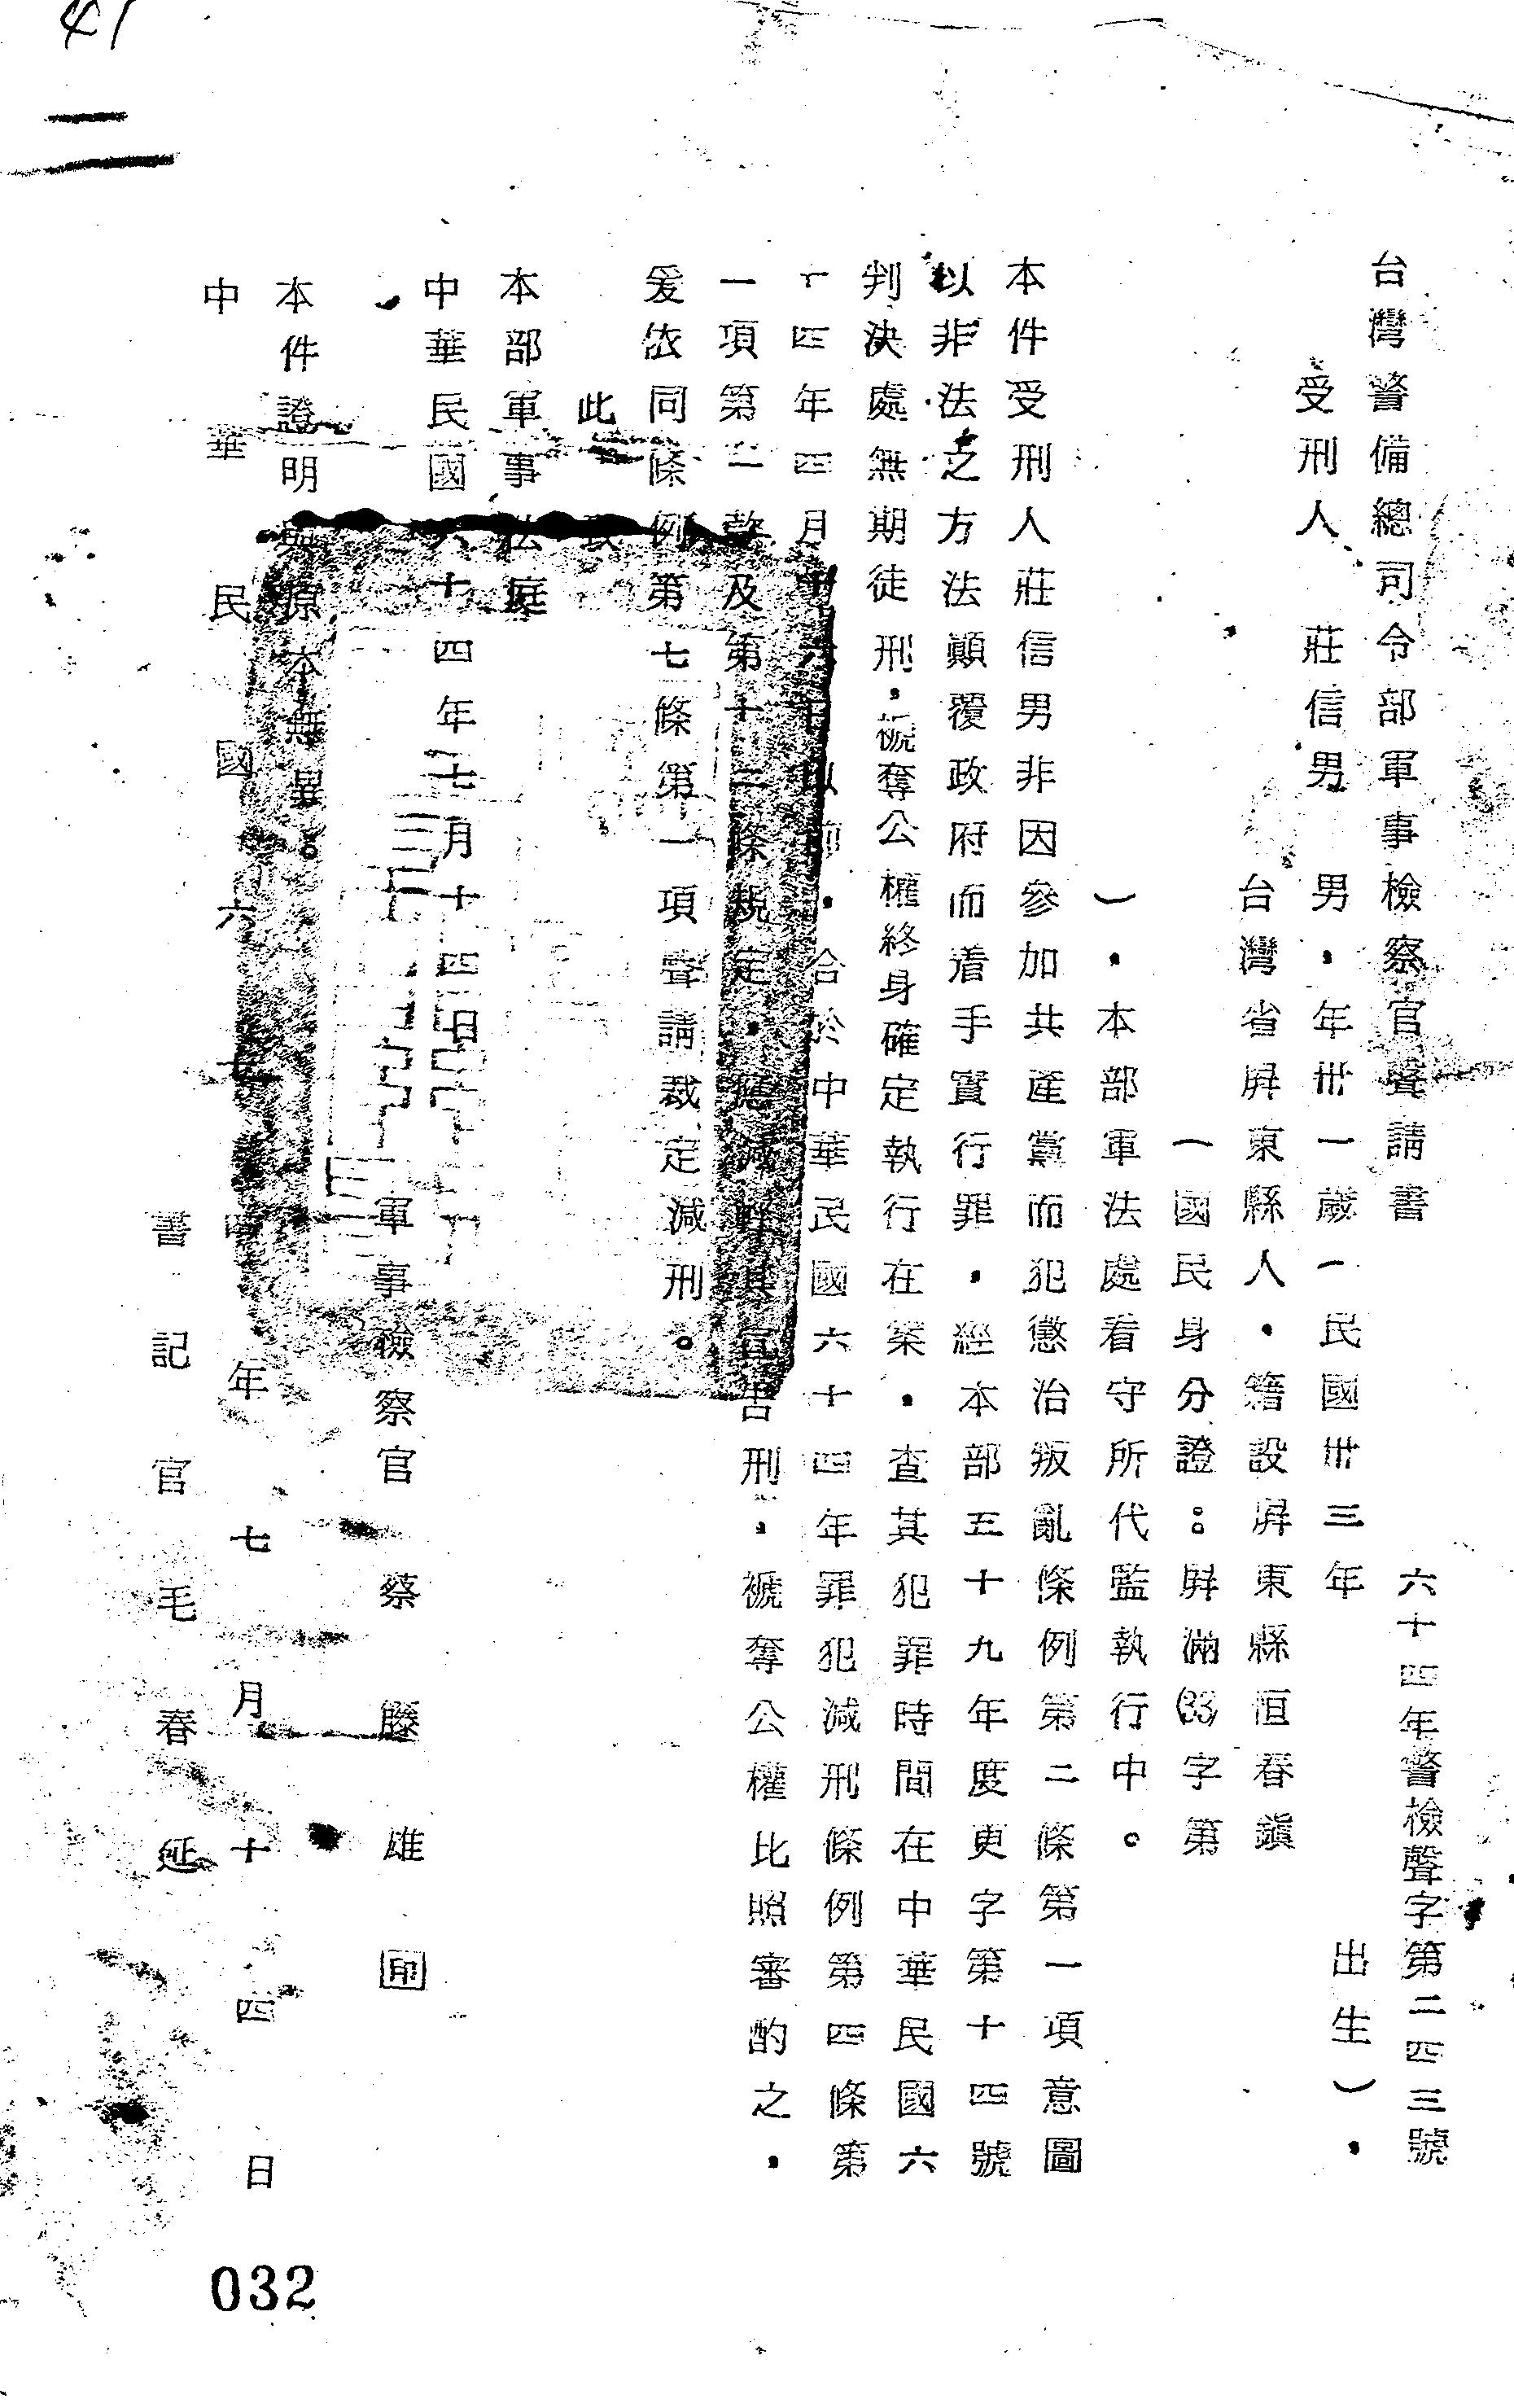 41
台灣警備總司令部軍事檢察官聲請書
六十四年警檢聲字第二四三號
受刑人 莊信男 男,年卅一歲(民國卅三年 出生),
台灣省屏東縣人,籍設屏東縣恒春鎮
(國民身分證:屏滿(33)字第
),本部軍法處看守所代監執行中。
本件受刑人莊信男非因參加共產黨而犯懲治叛亂條例第二條第一項意圖
以非法之方法顛覆政府而着手實行罪,經本部五十九年度更字第十四號
判決處無期徒刑,褫奪公權終身確定執行在案,查其犯罪時間在中華民國六
十四年四月十六日以前,合於中華民國六十四年罪犯減刑條例第四條第
一項第二款及第十二條規定,應減輕其宣告刑,褫奪公權比照審酌之,
爰依同條例第七條第一項聲請裁定減刑。
此致
本部軍事法庭
中華民國六十四年七月十四日
軍事檢察官 蔡 滕 雄 印
本件證明與原本無異。
中華民國六十四年七月十四日
書記官 毛 春 延
032